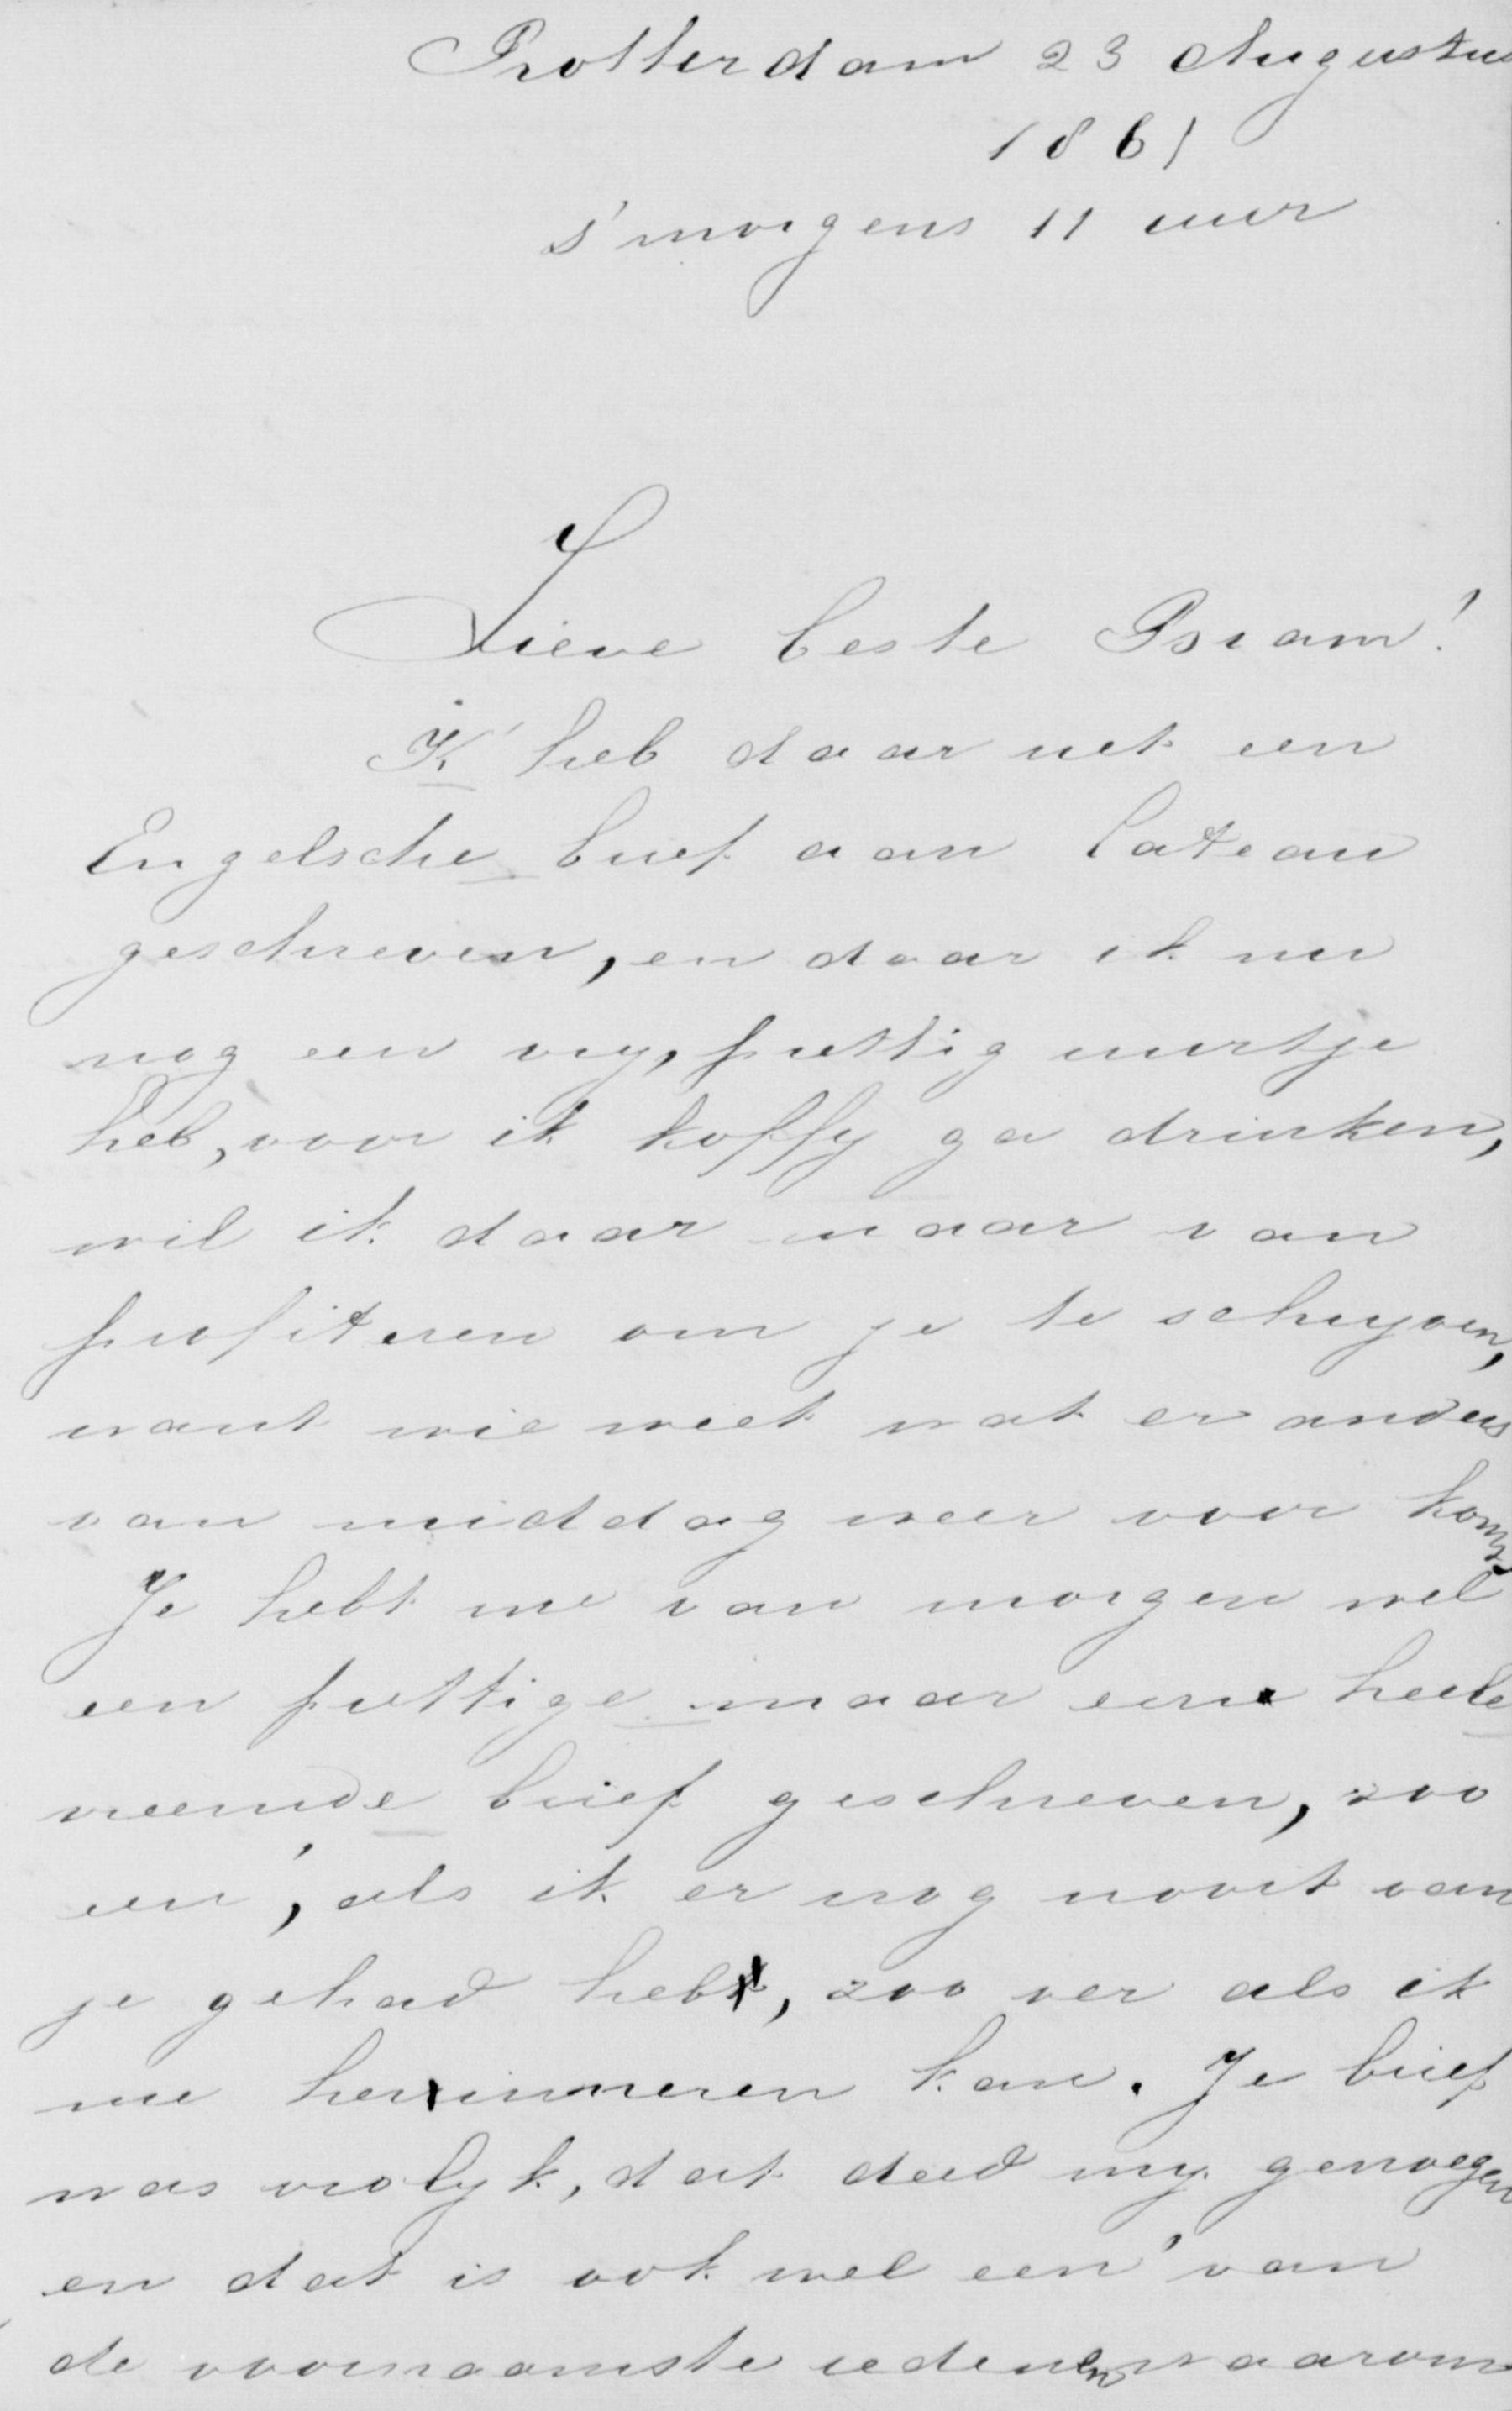 Rotterdam 23 Augustus
1861
s'morgens 11 uur
Lieve beste Bram!
K' heb daar net een
Engelsche brief aan Cateau
geschreven, en daar ik nu
nog een vry, prettig uurtje
heb, voor ik koffy ga drinken,
wil ik daar maar van
profiteren om je te schryven,
want wie weet wat er anders
van middag weer voor komt
Je hebt me van morgen wel
een prettige maar een heele
vreemde brief geschreven, zoo
een', als ik er nog nooit van
je gehad heb, zoo ver als ik
me herinneren kan. Je brief
was vrolyk, dat deed my genoegen
en dat is ook wel een' van
de voornaamste redenen waarom